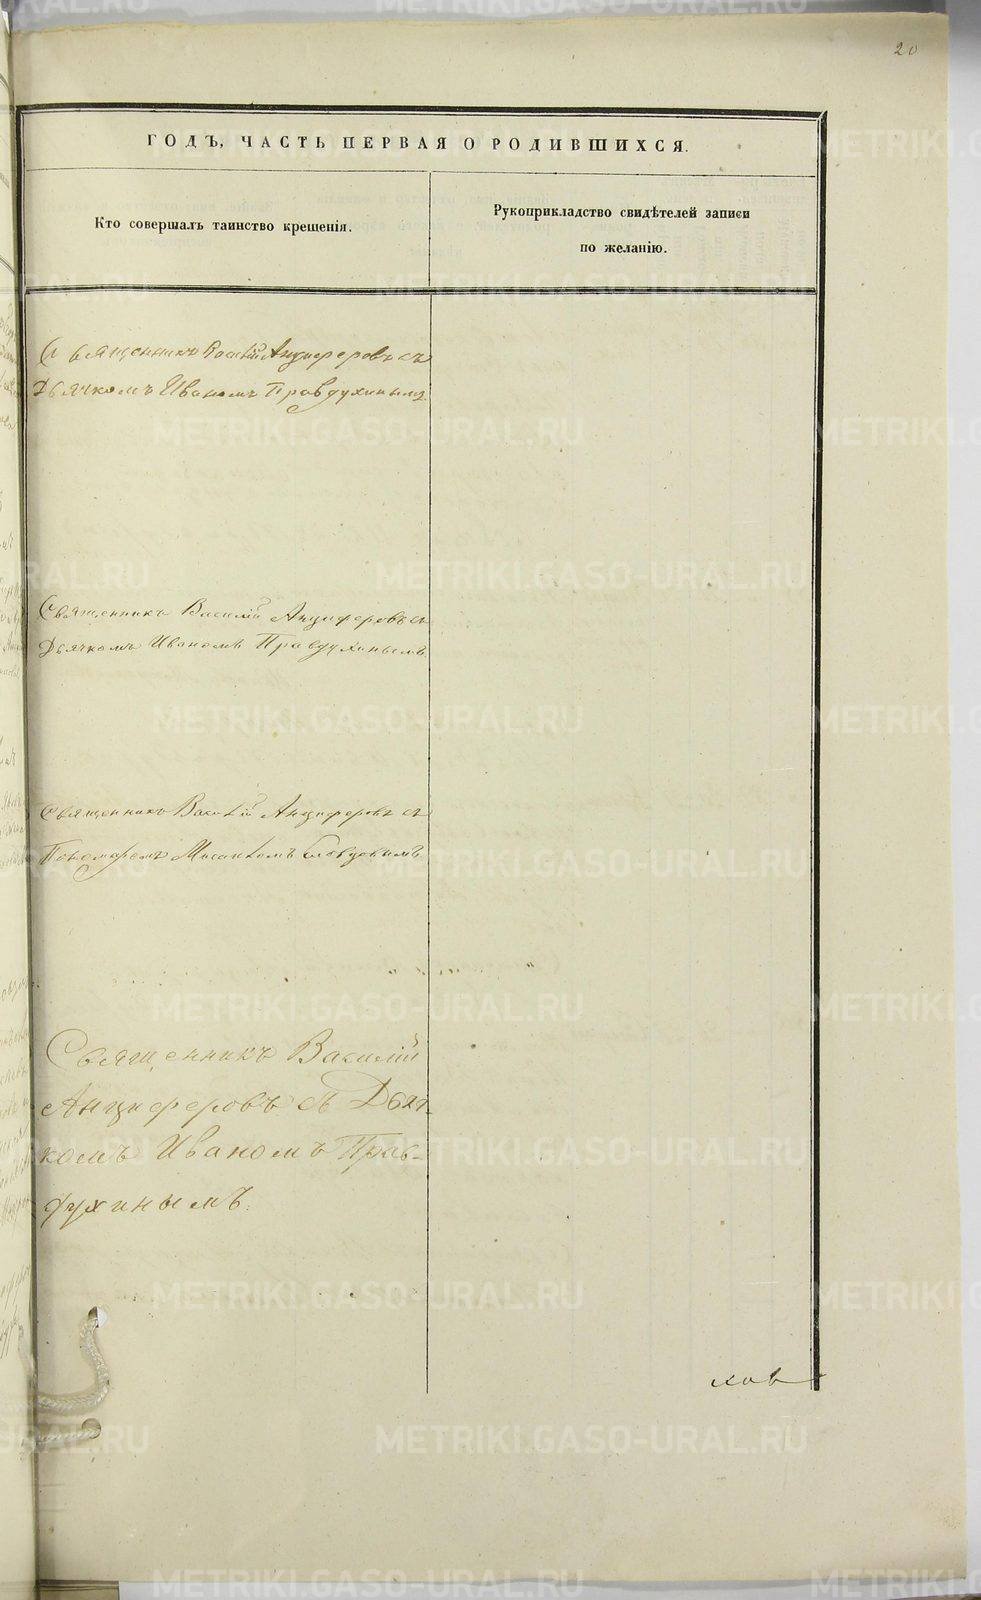 20
ГОДЪ, ЧАСТЬ ПЕРВАЯ О РОДИВШИХСЯ.
Кто совершалъ таинство крещенія.
Рукоприкладство свидѣтелей записи
по желанію.
Священникъ Василій Анциферовъ съ
Дьячкомъ Иваномъ Правдухинымъ.
Священникъ Василій Анциферовъ съ
Дьячкомъ Иваномъ Правдухинымъ.
Священникъ Василій Анциферовъ съ
Пономаремъ
Священникъ Василій
Анциферовъ съ Дьяч-
комъ Иваномъ Прав-
духинымъ.
METRIKI.GASO-URAL.RU